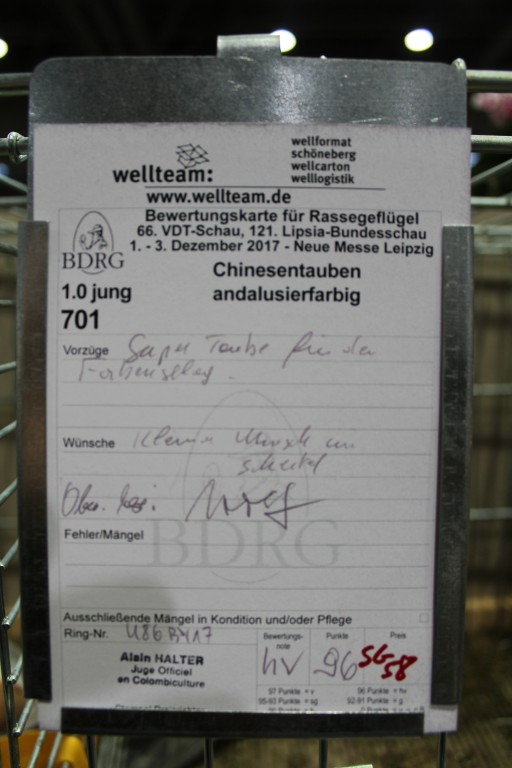 wellteam:
wellformat
schöneberg
wellcarton
welllogistik
www.wellteam.de
Bewertungskarte für Rassegeflügel
66. VDT-Schau, 121. Lipsia-Bundesschau
1. - 3. Dezember 2017 - Neue Messe Leipzig
BDRG
Chinesentauben
1.0 jung andalusierfarbig
701
Vorzüge Super Taube für den
Farbenschlag.
Wünsche Kleiner Wunsch im
Scheitel
Fehler/Mängel
BDRG
Ausschließende Mängel in Kondition und/oder Pflege
Ring-Nr.
Bewertungs-
note
Punkte
Preis
Alain HALTER
Juge Officiel
en Colombiculture
hv 96 SG 58
97 Punkte = v 96 Punkte = hv